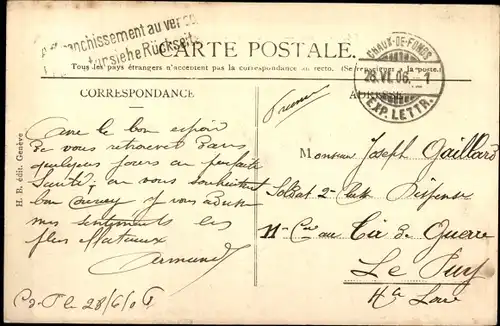 Affranchissement au verso
siehe Rückseite
CARTE POSTALE.
Tous les pays étrangers n'acceptent pas la correspondance au recto. (Se renseigner à la poste.)
CHAUX-DE-FONDS
28.VI.06. 1
EXP. LETTR.
CORRESPONDANCE
ADRESSE
H. B. édit. Genève
Avec le bon espoir
de vous retrouver dans
quelques jours en parfaite
santé, en vous souhaitant
bon
je vous adresse
mes sentiments les
plus affectueux
Armand
28/6/06
France
Monsieur Joseph Gaillard
Soldat 2e Classe Dispensé
11e Cie au Ct de Guerre
Le Puy
Hte Loire